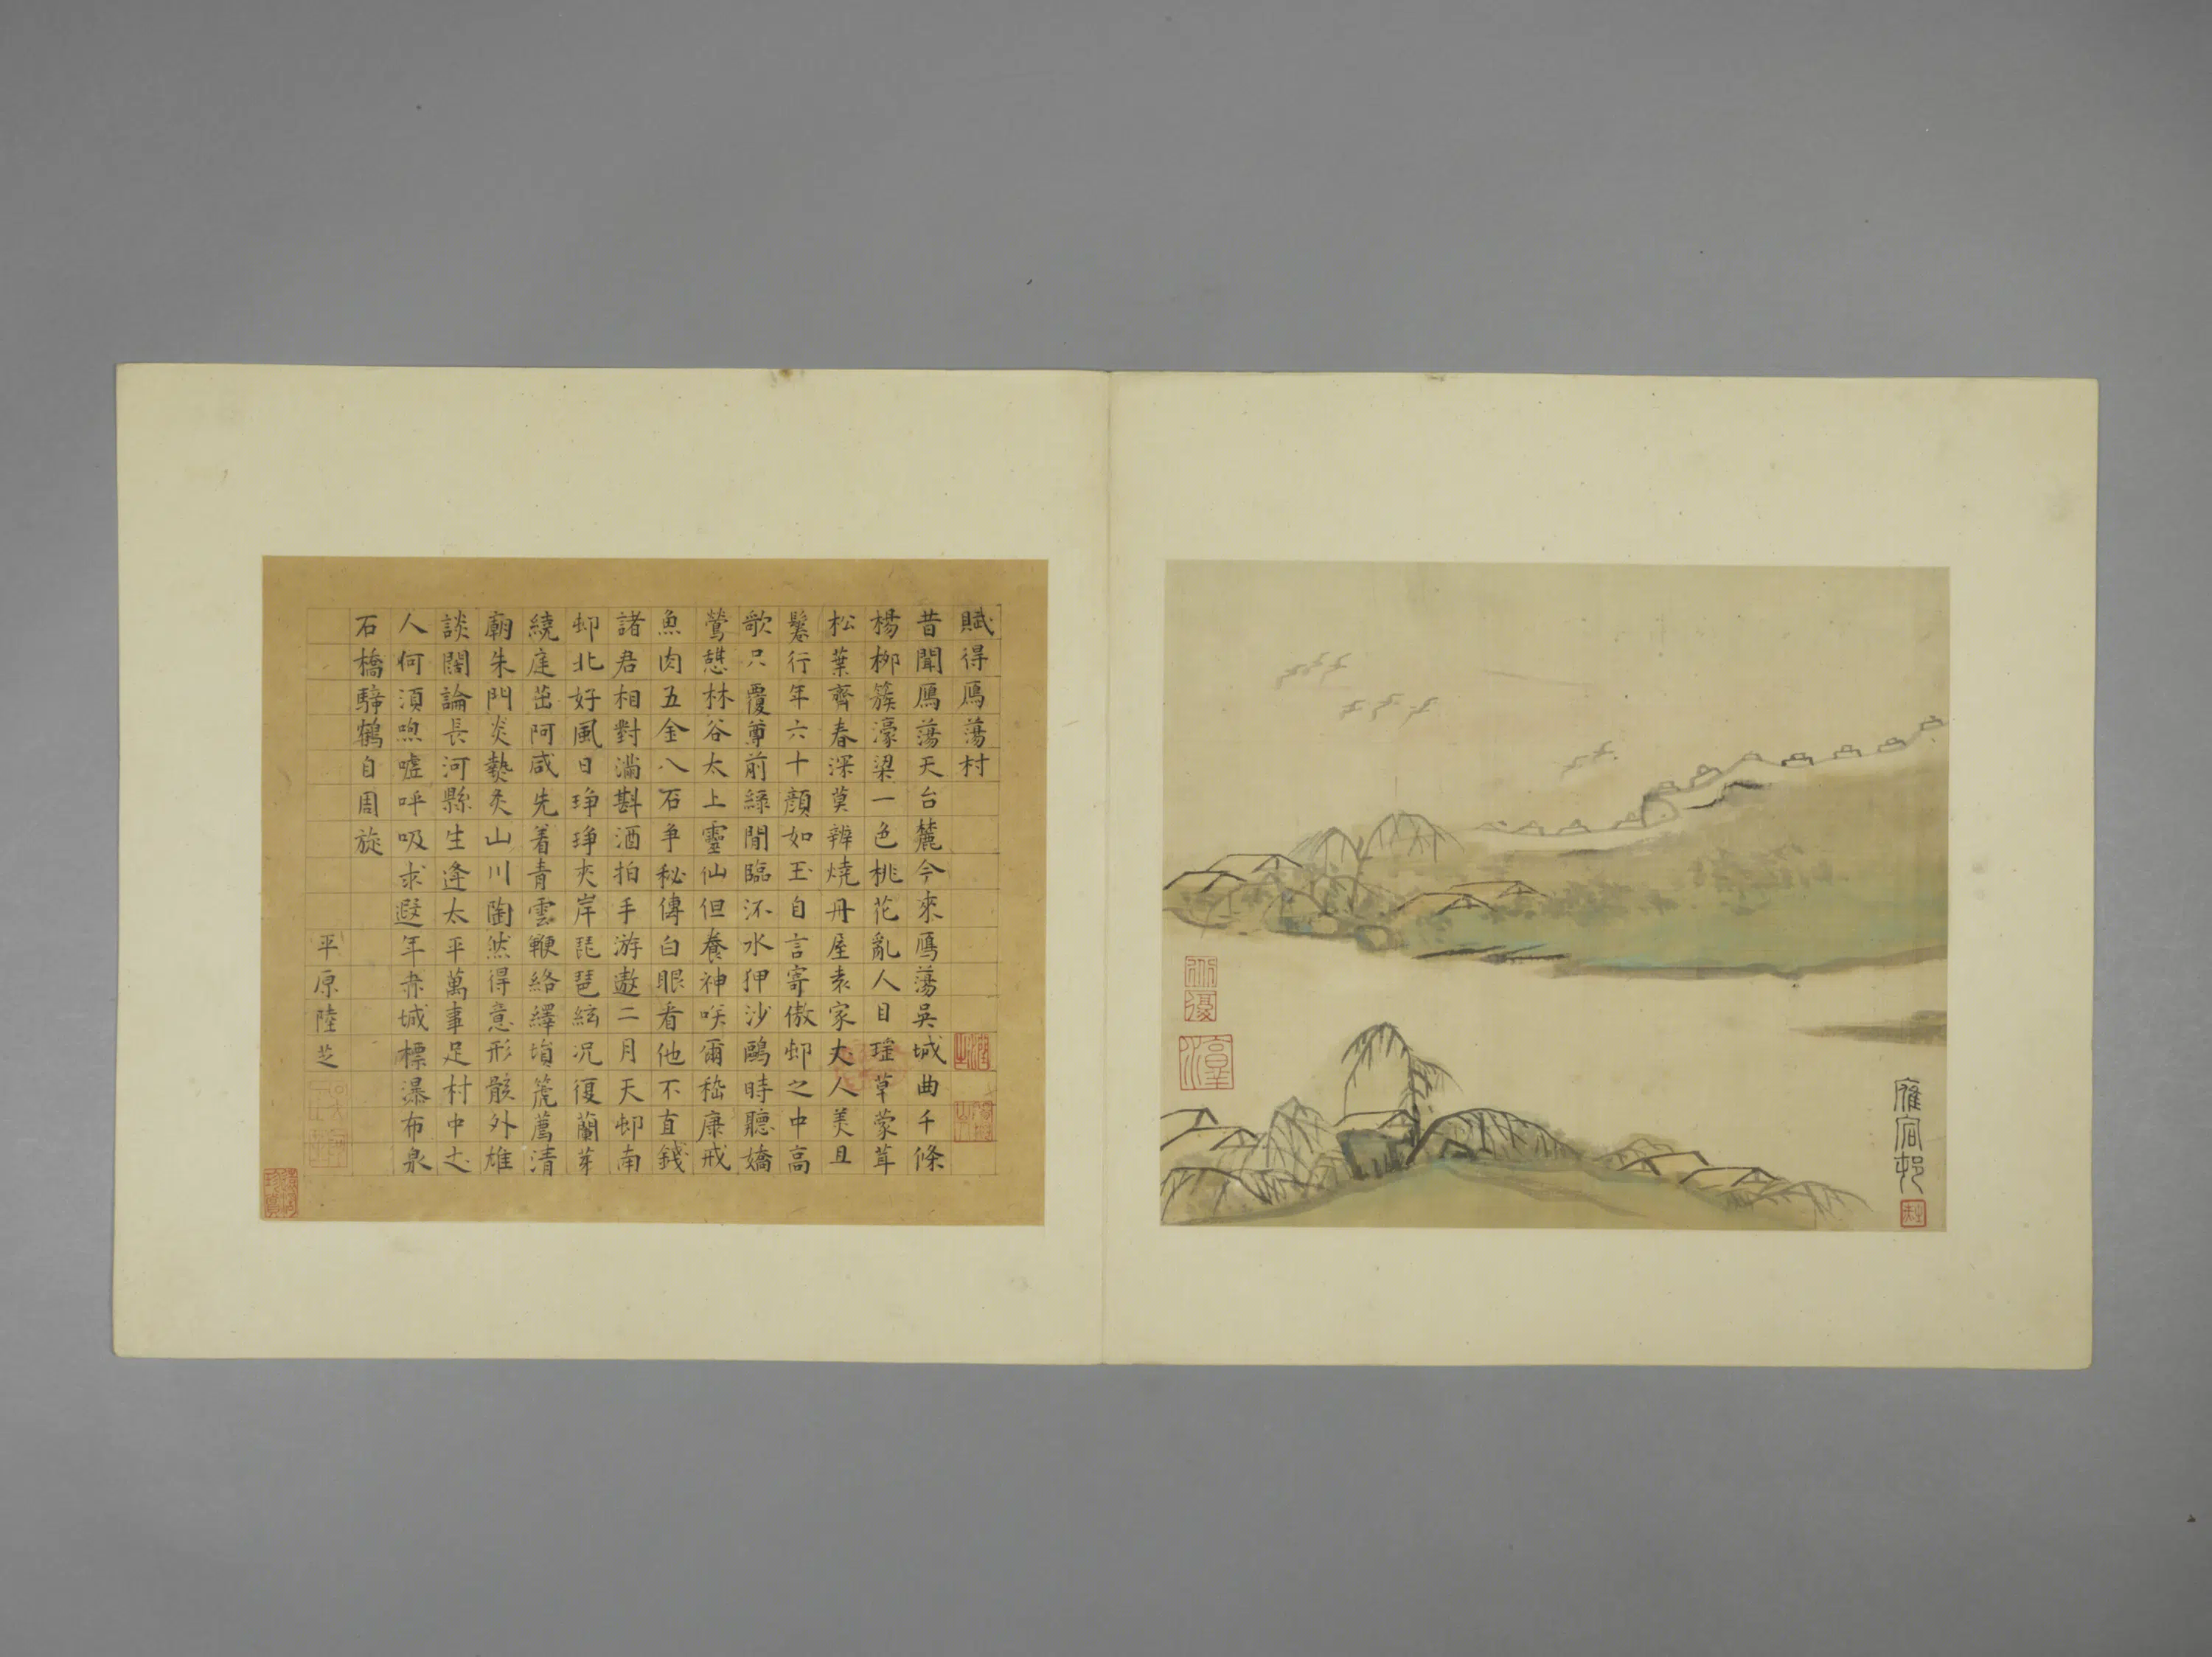 雁宕邨
賦得鴈蕩村
昔聞鴈蕩天台麓今來鴈蕩吳城曲千條
楊栁簇濠梁一色桃花亂人目瑶草蒙茸
松葉齊春深莫辨燒丹屋袁家大人美且
鬈行年六十顔如玉自言寄傲邨之中高
歌只覆尊前綠閒臨沠水狎沙鷗時聽嬌
鶯憇林谷太上靈仙但養神咲爾嵇康戒
魚肉五金八石争秘傳白眼看他不直錢
諸君相對滿斟酒拍手游遨二月天邨南
邨北好風日琤琤夾岸琵琶絃况復蘭芽
繞庭茁阿咸先着青雲鞭絡繹塤箎薦清
廟朱門炎熱炙山川陶然得意形骸外雄
談闊論長河縣生逢太平萬事足村中之
人何須喣嘘呼吸求遐年赤城標瀑布泉
石橋騎鶴自周旋
平原陸芝